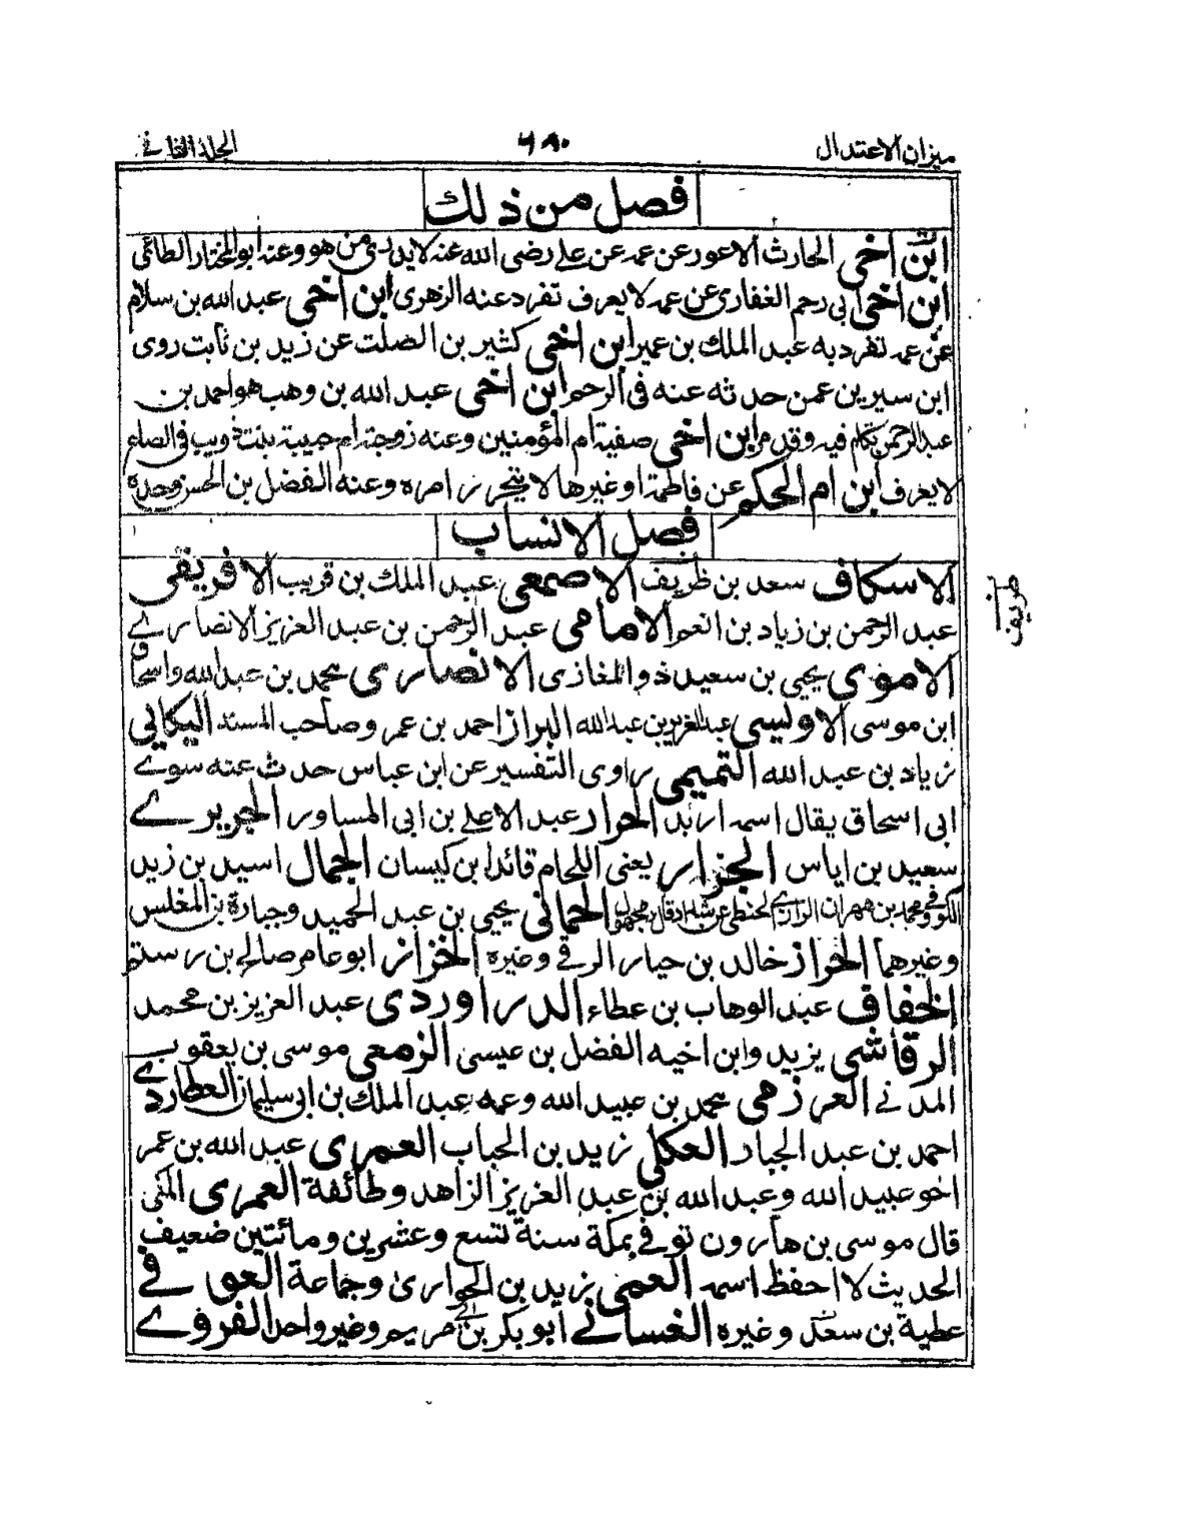 ميزان الاعتدال
٦٨٠
الجلد الثاني
فصل من ذلك
ابن اخى الحارث الاعور عن عمه عن على رضى الله عنه لا يدرى من هو وعنه ابو المختار الطائى
ابن اخى ابى رهم الغفارى عن عمه لا يعرف تفرد عنه الزهرى ابن اخى عبد الله بن سلام
عن عمه تفرد به عبد الملك بن عمير ابن اخى كثير بن الصلت عن زيد بن ثابت روى
ابن سيرين عمن حدثه عنه فى الرجم ابن اخى عبد الله بن وهب هو احمد بن
عبد الرحمن تكلم فيه وقد مر ابن اخى صفية ام المؤمنين وعنه زوجته ام حبيبة بنت ذويب فى الصاع
لا يعرف ابن ام الحكم عن فاطمة او غيرها لا يتحرر امره وعنه الفضل بن الحسن وحده
فصل الانساب
الاسكاف سعد بن ظريف الاصمعى عبد الملك بن قريب الافريقى
طريف
عبد الرحمن بن زياد بن انعم الامامى عبد الرحمن بن عبد العزيز الانصارے
الاموى يحيى بن سعيد ذو المغازى الانصارى محمد بن عبد الله واسحاق
ابن موسى الاويسى عبد العزيز بن عبد الله البزاز احمد بن عمر وصاحب المسند البكائى
زياد بن عبد الله التميمى راوى التفسير عن ابن عباس حدث عنه سوے
ابى اسحاق يقال اسمه اربد الجرار عبد الاعلى بن ابى المساور الجريرے
سعيد بن اياس الجزار يعنى اللحام قائد ابن كيسان الجمال اسيد بن زيد
الكوفى ومحمد بن مهران الرازى الحمانى يحيى بن عبد الحميد وجبارة بن المغلس
وغيرهما الخراز خالد بن حيان الرقى وغيره الخزاز ابو عامر صالح بن رستم
الخفاف عبد الوهاب بن عطاء الدراوردى عبد العزيز بن محمد
الرقاشى يزيد وابن اخيه الفضل بن عيسى الزمعى موسى بن يعقوب
المدنى العرزمى محمد بن عبيد الله وعمه عبد الملك بن ابى سليمان العطاردے
احمد بن عبد الجبار العكلى زيد بن الحباب العمرى عبد الله بن عمر
اخو عبيد الله وعبد الله بن عبد العزيز الزاهد وطائفة العمرى المكى
قال موسى بن هارون توفى بمكة سنة تسع وعشرين ومائتين ضعيف
الحديث لا احفظ اسمه العمى زيد بن الحوارى وجماعة العوفى
عطية بن سعد وغيره الغسانى ابو بكر بن ابى مريم وغير واحد الفروے